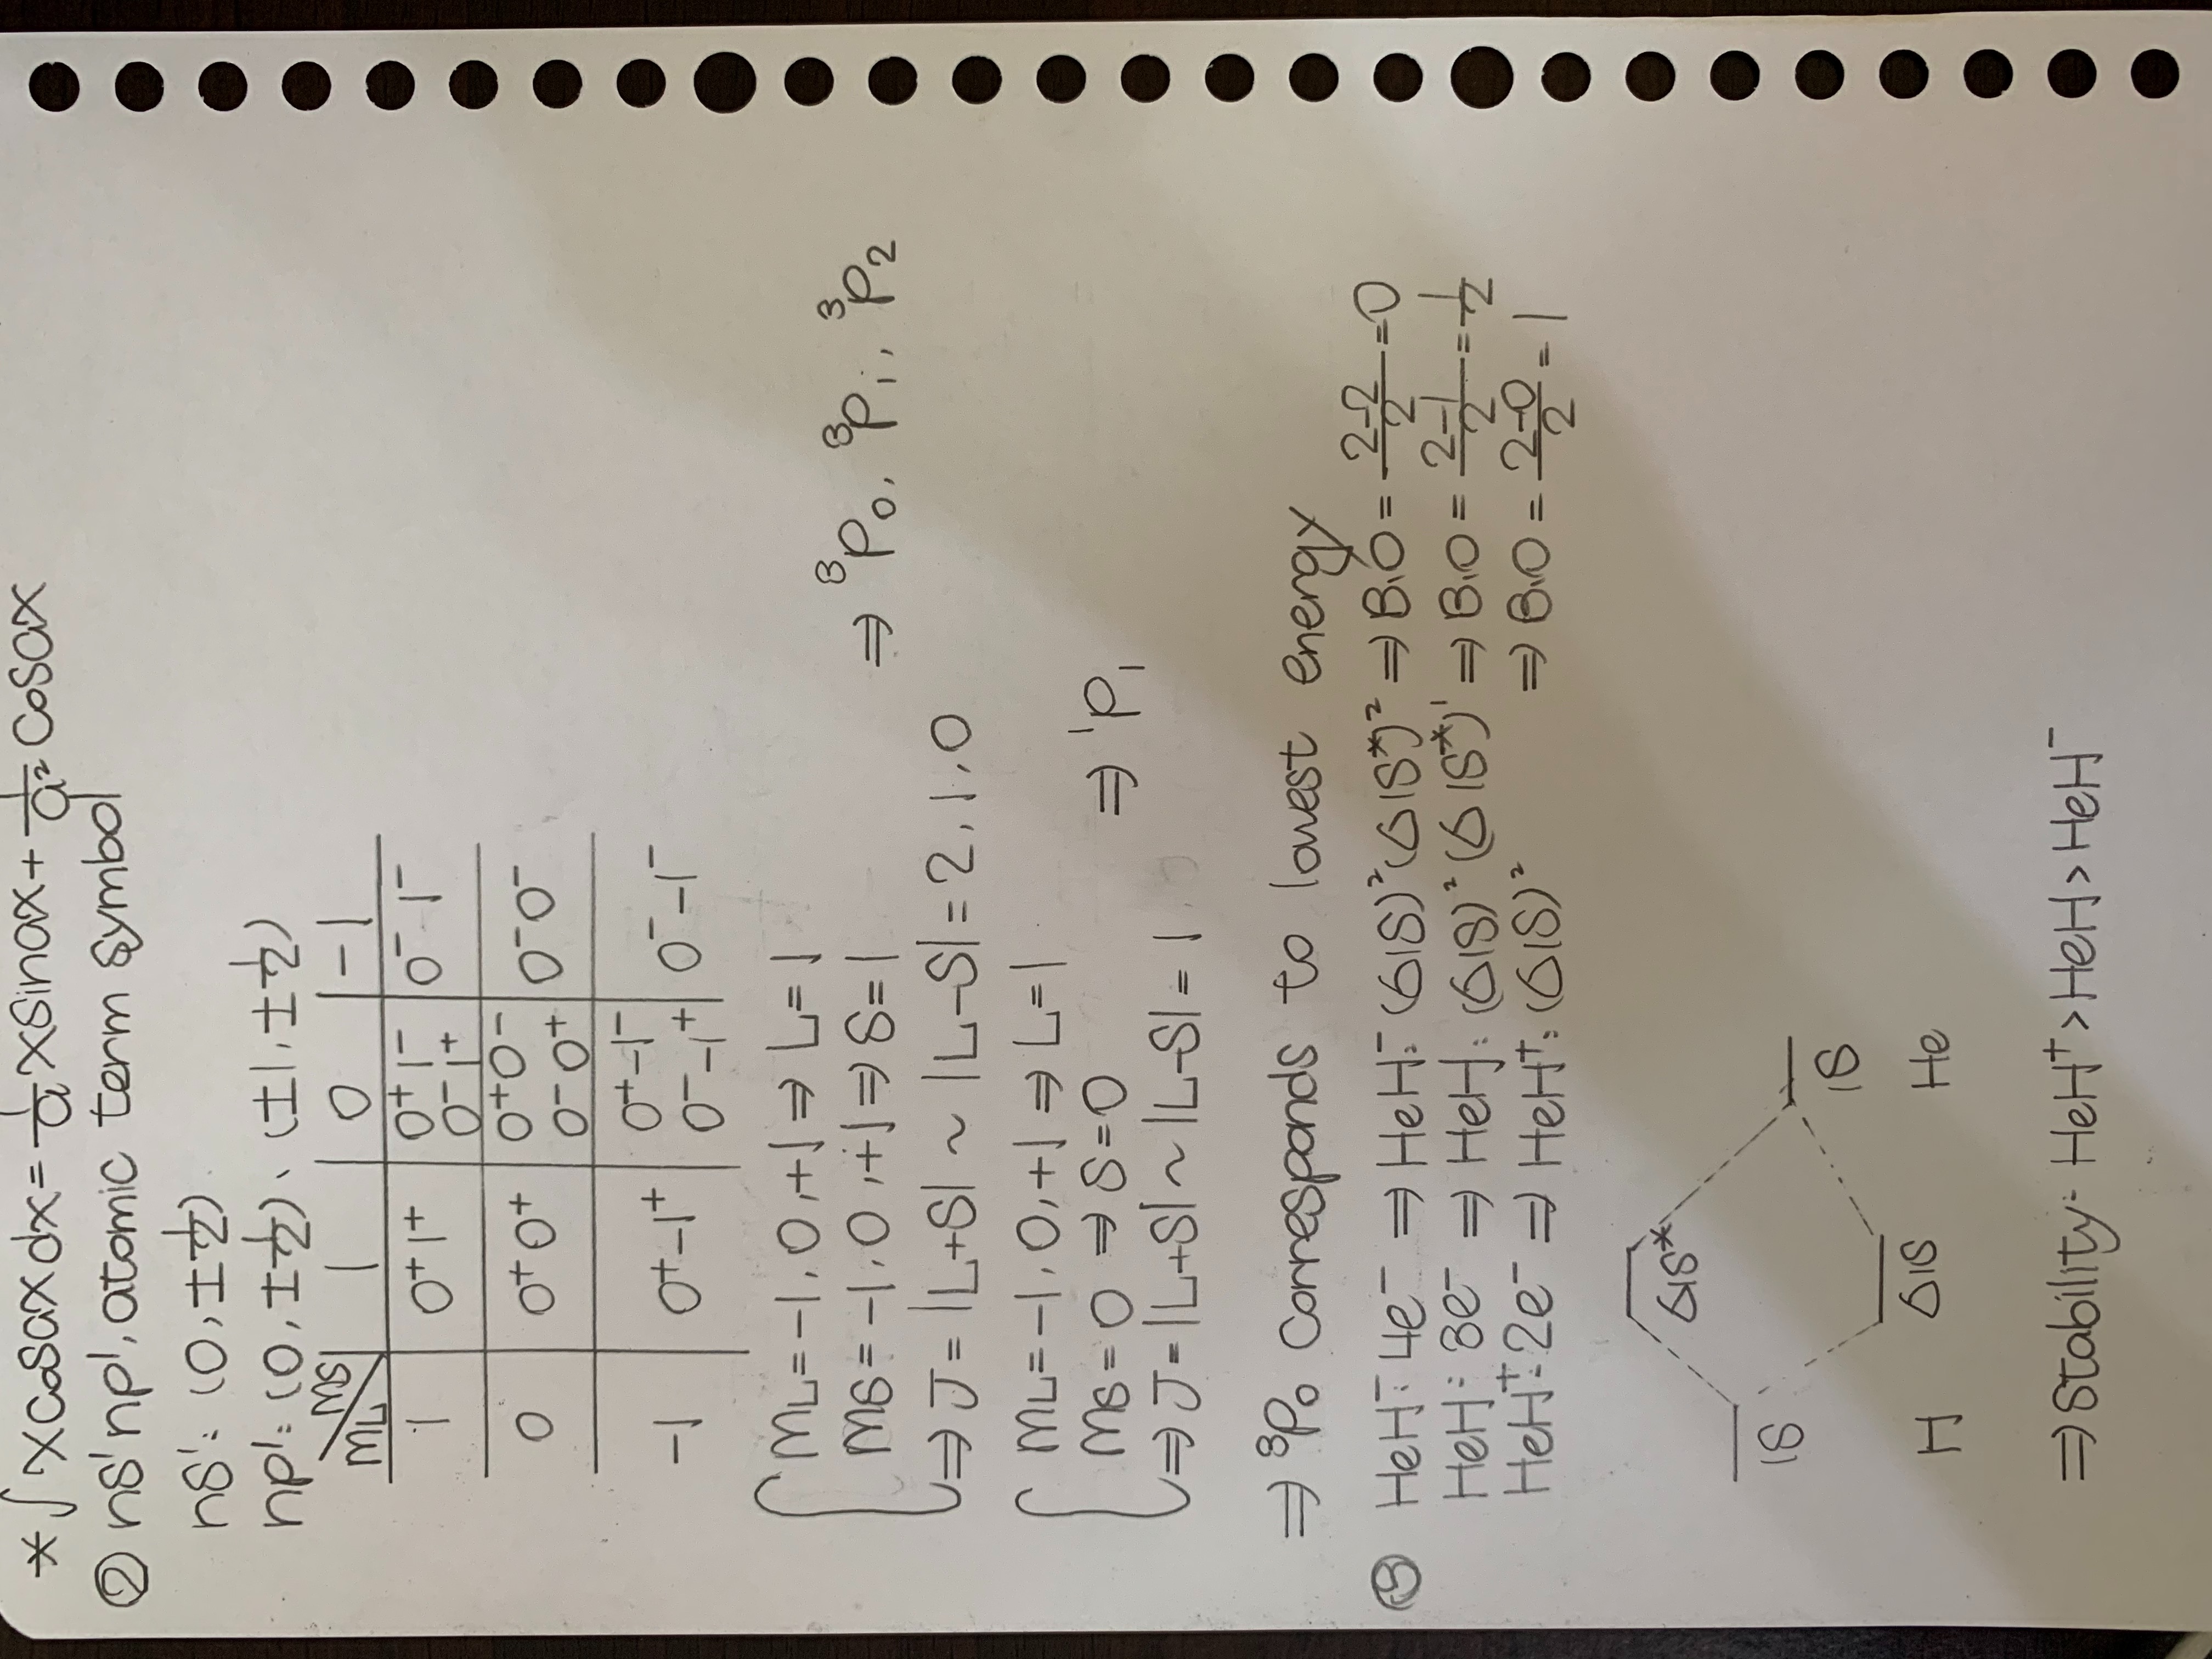 * ∫ x cos ax dx = 1/a x sin ax + 1/a² cos ax
② ns¹ np¹, atomic term symbol
ns¹: (0, ±1/2)
np¹: (0, ±1/2)、(±1, ±1/2)
ML\MS 1 0 -1
1 0⁺1⁺ 0⁺1⁻ 0⁻1⁺ 0⁻1⁻
0 0⁺0⁺ 0⁺0⁻ 0⁻0⁺ 0⁻0⁻
-1 0⁺-1⁺ 0⁺-1⁻ 0⁻-1⁺ 0⁻-1⁻
ML = -1, 0, +1 ⇒ L = 1
MS = -1, 0, +1 ⇒ S = 1 ⇒ ³P₀, ³P₁, ³P₂
⇒ J = |L+S| ~ |L-S| = 2, 1, 0
ML = -1, 0, +1 ⇒ L = 1
MS = 0 ⇒ S = 0 ⇒ ¹P₁
⇒ J = |L+S| ~ |L-S| = 1
⇒ ³P₀ corresponds to lowest energy
③ HeH⁻: 4e⁻ ⇒ HeH⁻: (σ1s)² (σ1s*)² ⇒ B.O = (2-2)/2 = 0
HeH: 3e⁻ ⇒ HeH: (σ1s)² (σ1s*)¹ ⇒ B.O = (2-1)/2 = 1/2
HeH⁺: 2e⁻ ⇒ HeH⁺: (σ1s)² ⇒ B.O = (2-0)/2 = 1
σ1s*
1s
1s
σ1s
H He
⇒ Stability: HeH⁺ > HeH > HeH⁻